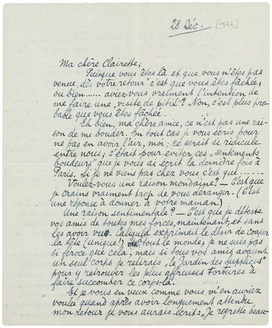 28 Déc. (1922)
Ma chère Clairette,
Puisque vous êtes là et que vous n'êtes pas
venue dès votre retour c'est que vous êtes fâchée,
ou bien..... aviez-vous vraiment l'intention de
me faire une "visite de pitié"? Non, c'est plus probable
que vous êtes fâchée.
Eh bien, ma chère amie, ce n'est pas une raison
de me bouder. En tout cas je vous écris pour
ne pas en avoir l'air, moi; ce serait si ridicule
entre nous; c'était pour éviter ces "sentiments
boudeurs" que je vous ai écrit la dernière fois à
Paris. Si je ne viens pas chez vous c'est que
Voulez-vous une raison mondaine? — C'est que
je crains vraiment trop de vous déranger. (C'est
une réponse à donner à votre maman)
Une raison sentimentale? — C'est que je déteste
vos amis de toutes mes forces, maintenant, et sans
les avoir vus. exprimait le désir de couper
la tête (unique!) de tout le monde, je ne suis pas
si féroce que cela, mais si tous vos amis avaient
un seul corps je "le Jardin des supplices"
pour y retrouver les plus affreuses tortures à
faire succomber ce corps-là.
Et je vous en veux comme vous m'en auriez
voulu quand après avoir longuement attendu
mon retour je vous aurais écrit: Je regrette beau